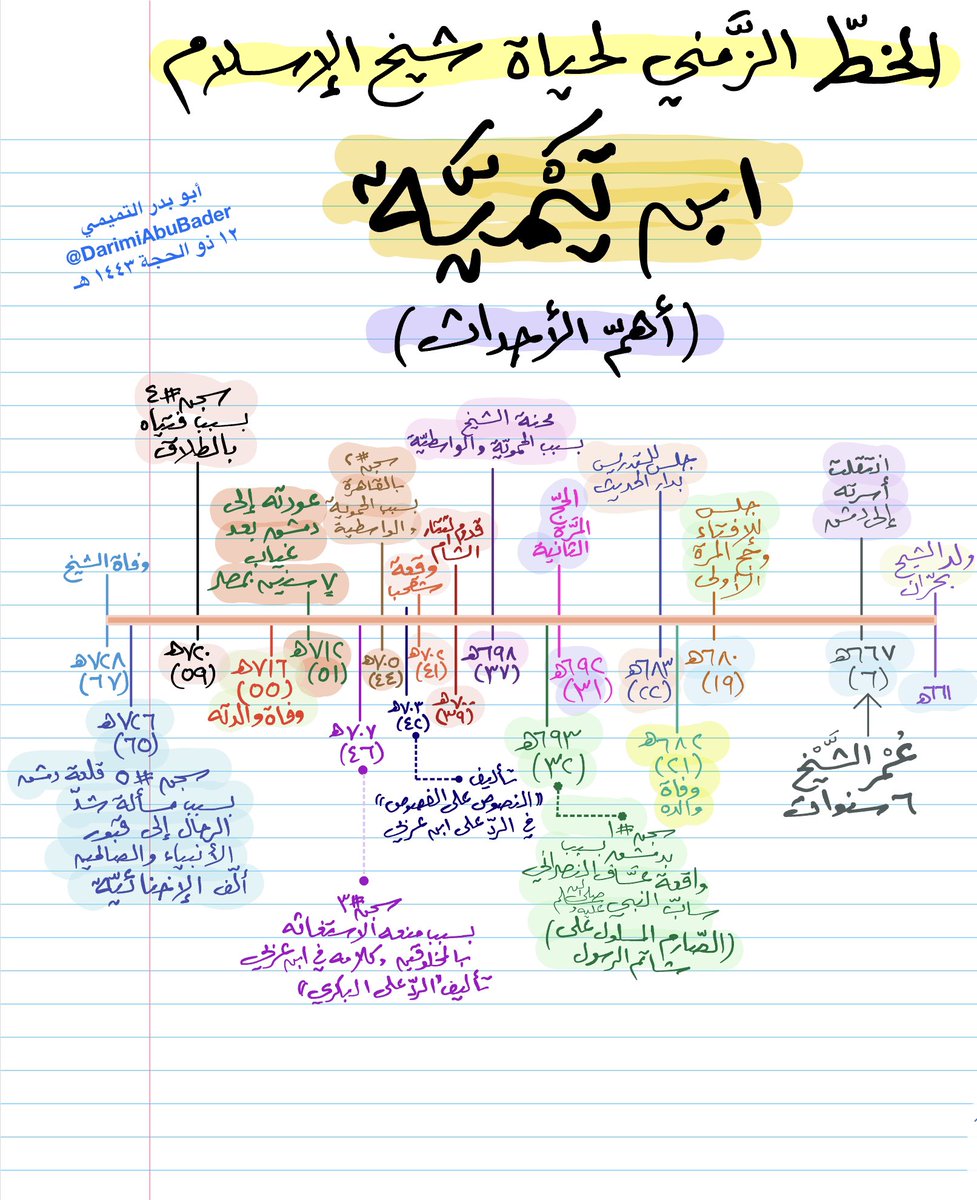 الخطّ الزَّمني لحياة شيخ الإسلام
ابن تَيْمِيَّة
(أهمّ الأحداث)
أبو بدر التميمي
@DarimiAbuBader
١٢ ذو الحجة ١٤٤٣ هـ
ولد الشيخ
بحرّان
٦٦١هـ
انتقلت
أسرته
إلى دمشق
٦٦٧هـ
(٦)
عُمْر الشَّيْخ
٦ سنوات
جلس
للإفتاء
وحج المرة
الأولى
٦٨٠هـ
(١٩)
٦٨٢هـ
(٢١)
وفاة
والده
جلس للتدريس
بدار الحديث
٦٨٣هـ
(٢٢)
الحجّ
المرّة
الثانية
٦٩٢هـ
(٣١)
٦٩٣هـ
(٣٢)
سجن#١
بدمشق بسبب
واقعة عسّاف النصراني
سابّ النبي صلى الله عليه وسلم
(الصّارم المسلول على
شاتم الرسول)
محنة الشيخ
بسبب الحمويّة والواسطيّة
٦٩٨هـ
(٣٧)
قدوم التتار
الشام
٧٠٠هـ
(٣٩)
وقعة
شقحب
٧٠٢هـ
(٤١)
٧٠٣هـ
(٤٢)
تأليف
"النصوص على الفصوص"
في الردّ على ابن عربي
سجن#٢
بالقاهرة
بسبب الحموية
والواسطية
٧٠٥هـ
(٤٤)
٧٠٧هـ
(٤٦)
سجن#٣
بسبب منعه الاستغاثه
بالمخلوقين وكلامه في ابن عربي
تأليف "الردّ على البكري"
عودته إلى
دمشق بعد
غياب
٧ سنين بمصر
٧١٢هـ
(٥١)
٧١٦هـ
(٥٥)
وفاة والدته
سجن#٤
بسبب فتياه
بالطلاق
٧٢٠هـ
(٥٩)
٧٢٦هـ
(٦٥)
سجن#٥ قلعة دمشق
بسبب مسألة شدّ
الرحال إلى قبور
الأنبياء والصالحين
ألّف الإخنائيّة
وفاة الشيخ
٧٢٨هـ
(٦٧)